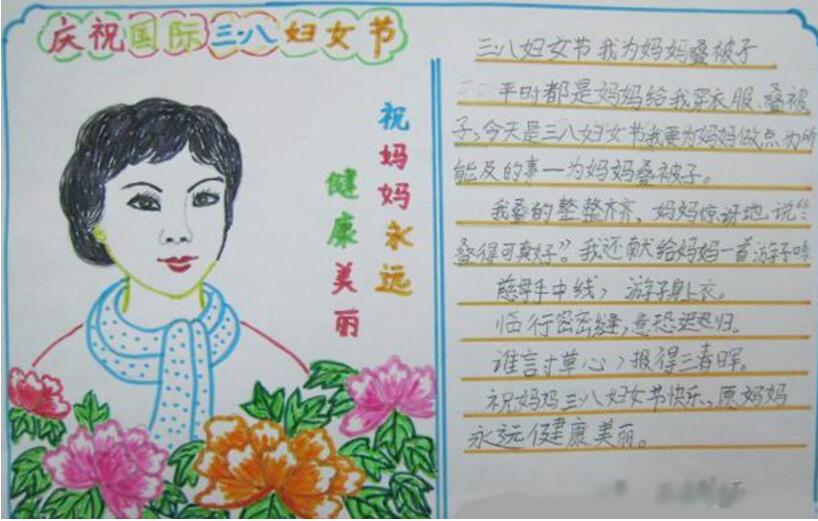 庆祝国际三·八妇女节
祝妈妈永远
健康美丽
三八妇女节我为妈妈叠被子
平时都是妈妈给我穿衣服、叠被
子,今天是三八妇女节我要为妈妈做点力所
能及的事一为妈妈叠被子。
我叠的整整齐齐、妈妈惊讶地说“
叠得可真好”。我还献给妈妈一首游子吟
慈母手中线,游子身上衣。
临行密密缝,意恐迟迟归。
谁言寸草心,报得三春晖。
祝妈妈三八妇女节快乐、愿妈妈
永远健康美丽。